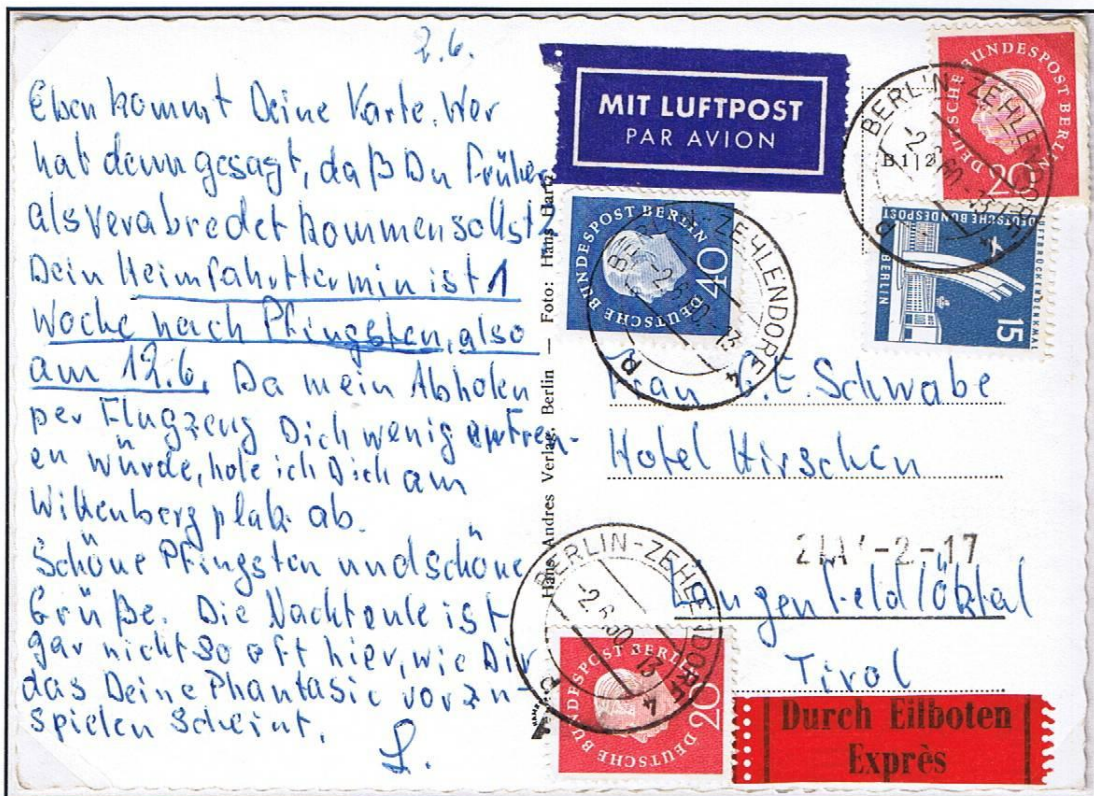 2.6.
Eben kommt Deine Karte. Wer
hat denn gesagt, daß Du früher
als verabredet kommen sollst?
Dein Heimfahrttermin ist 1
Woche nach Pfingsten, also
am 12.6. Da mein Abholen
per Flugzeug Dich wenig erfreu-
en würde, hole ich Dich am
Wittenbergplatz ab.
Schöne Pfingsten und schöne
Grüße. Die Nachteule ist
gar nicht so oft hier, wie Dir
das Deine Phantasie vorzu-
spielen scheint.
L.
Hans Andres Verlag, Berlin — Foto: Hans Hartz
MIT LUFTPOST
PAR AVION
DEUTSCHE BUNDESPOST BERLIN
20
BERLIN-ZEHLENDORF 4
-2.6.60-13
B 1|2
DEUTSCHE BUNDESPOST
LUFTBRÜCKENDENKMAL
BERLIN
15
DEUTSCHE BUNDESPOST BERLIN
40
BERLIN-ZEHLENDORF 4
-2.6.60-13
Frau
Schwabe
Hotel Hirschen
-2.-17
Längenfeld/Ötztal
Tirol
BERLIN-ZEHLENDORF 4
-2.6.60-13
DEUTSCHE BUNDESPOST BERLIN
20
Durch Eilboten
Exprès